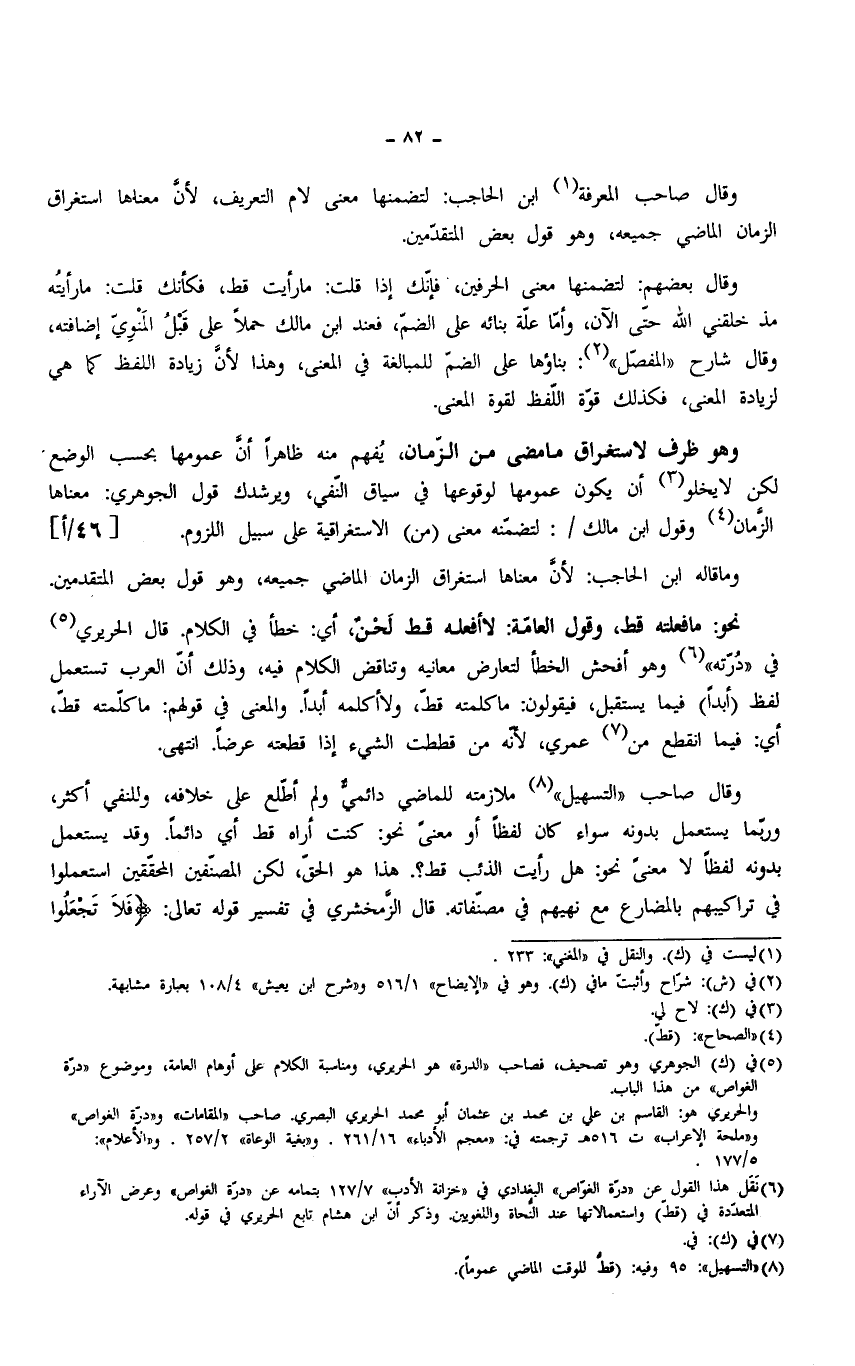 – ٨٢ –
وقال صاحب المعرفة(١) ابن الحاجب: لتضمنها معنى لام التعريف، لأنَّ معناها استغراق
الزمان الماضي جميعه، وهو قول بعض المتقدّمين.
وقال بعضهم: لتضمنها معنى الحرفين، فإنّك إذا قلت: مارأيت قط، فكأنك قلت: مارأيتُه
مذ خلقني الله حتّى الآن، وأمّا علّة بنائه على الضمّ، فعند ابن مالك حملاً على قَبْلُ المَنْوِيّ إضافته،
وقال شارح «المفصّل»(٢): بناؤها على الضمّ للمبالغة في المعنى، وهذا لأنَّ زيادة اللفظ كما هي
لزيادة المعنى، فكذلك قوّة اللّفظ لقوة المعنى.
وهو ظرف لاستغراق مامضى من الزّمان، يُفهم منه ظاهراً أنَّ عمومها بحسب الوضع
لكن لايخلو(٣) أن يكون عمومها لوقوعها في سياق النّفي، ويرشدك قول الجوهري: معناها
الزَّمان(٤) وقول ابن مالك / : لتضمّنه معنى (من) الاستغراقية على سبيل اللزوم. [٤٦/أ]
وماقاله ابن الحاجب: لأنَّ معناها استغراق الزمان الماضي جميعه، وهو قول بعض المتقدمين.
نحو: مافعلته قط، وقول العامّة: لاأفعلـه قـط لَحْـنٌ، أي: خطأ في الكلام. قال الحريري(٥)
في «دُرّته»(٦) وهو أفحش الخطأ لتعارض معانيه وتناقض الكلام فيه، وذلك أنّ العرب تستعمل
لفظ (أبداً) فيما يستقبل، فيقولون: ماكلمته قطّ، ولاأكلمه أبداً. والمعنى في قولهم: ماكلّمته قطّ،
أي: فيما انقطع من(٧) عمري، لأنّه من قططت الشيء إذا قطعته عرضاً. انتهى.
وقال صاحب «التسهيل»(٨) ملازمته للماضي دائميٌّ ولم أطّلع على خلافه، وللنفي أكثر،
وربّما يستعمل بدونه سواء كان لفظاً أو معنىً نحو: كنت أراه قط أي دائماً. وقد يستعمل
بدونه لفظاً لا معنىً نحو: هل رأيت الذئب قط؟. هذا هو الحقّ، لكن المصنّفين المحقّقين استعملوا
في تراكيبهم بالمضارع مع نهيهم في مصنّفاته. قال الزَّمخشري في تفسير قوله تعالى: ﴿فَلاَ تَجْعَلُوا
(١) ليست في (ك). والنقل في «المغني»: ٢٣٣ .
(٢) في (ش): شرّاح وأثبتّ مافي (ك). وهو في «الإيضاح» ٥١٦/١ و«شرح ابن يعيش» ١٠٨/٤ بعبارة مشابهة.
(٣) في (ك): لاح لي.
(٤) «الصحاح»: (قطّ).
(٥) في (ك) الجوهري وهو تصحيف، فصاحب «الدرة» هو الحريري، ومناسبة الكلام على أوهام العامة، وموضوع «درّة
الغواص» من هذا الباب.
والحريري هو: القاسم بن علي بن محمد بن عثمان أبو محمد الحريري البصري. صاحب «المقامات» و«درّة الغواص»
و«ملحة الإعراب» ت ٥١٦هـ ترجمته في: «معجم الأدباء» ٢٦١/١٦ . و«بغية الوعاة» ٢٥٧/٢ . و«الأعلام»:
١٧٧/٥ .
(٦) نَقَل هذا القول عن «درّة الغوّاص» البغدادي في «خزانة الأدب» ١٢٧/٧ بتمامه عن «درّة الغواص» وعرض الآراء
المتعدّدة في (قطّ) واستعمالاتها عند النُّحاة واللغويين. وذكر أنّ ابن هشام تابع الحريري في قوله.
(٧) في (ك): في.
(٨) «التسهيل»: ٩٥ وفيه: (قطُّ للوقت الماضي عموماً).